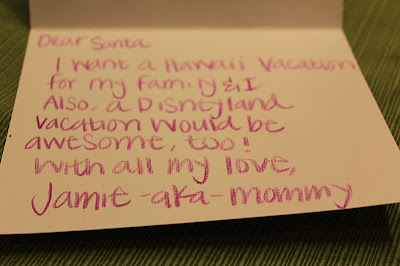 Dear Santa
I want a Hawaii Vacation
for my family & I.
Also, a Disneyland
vacation would be
awesome, too!
With all my love,
Jamie -aka- mommy